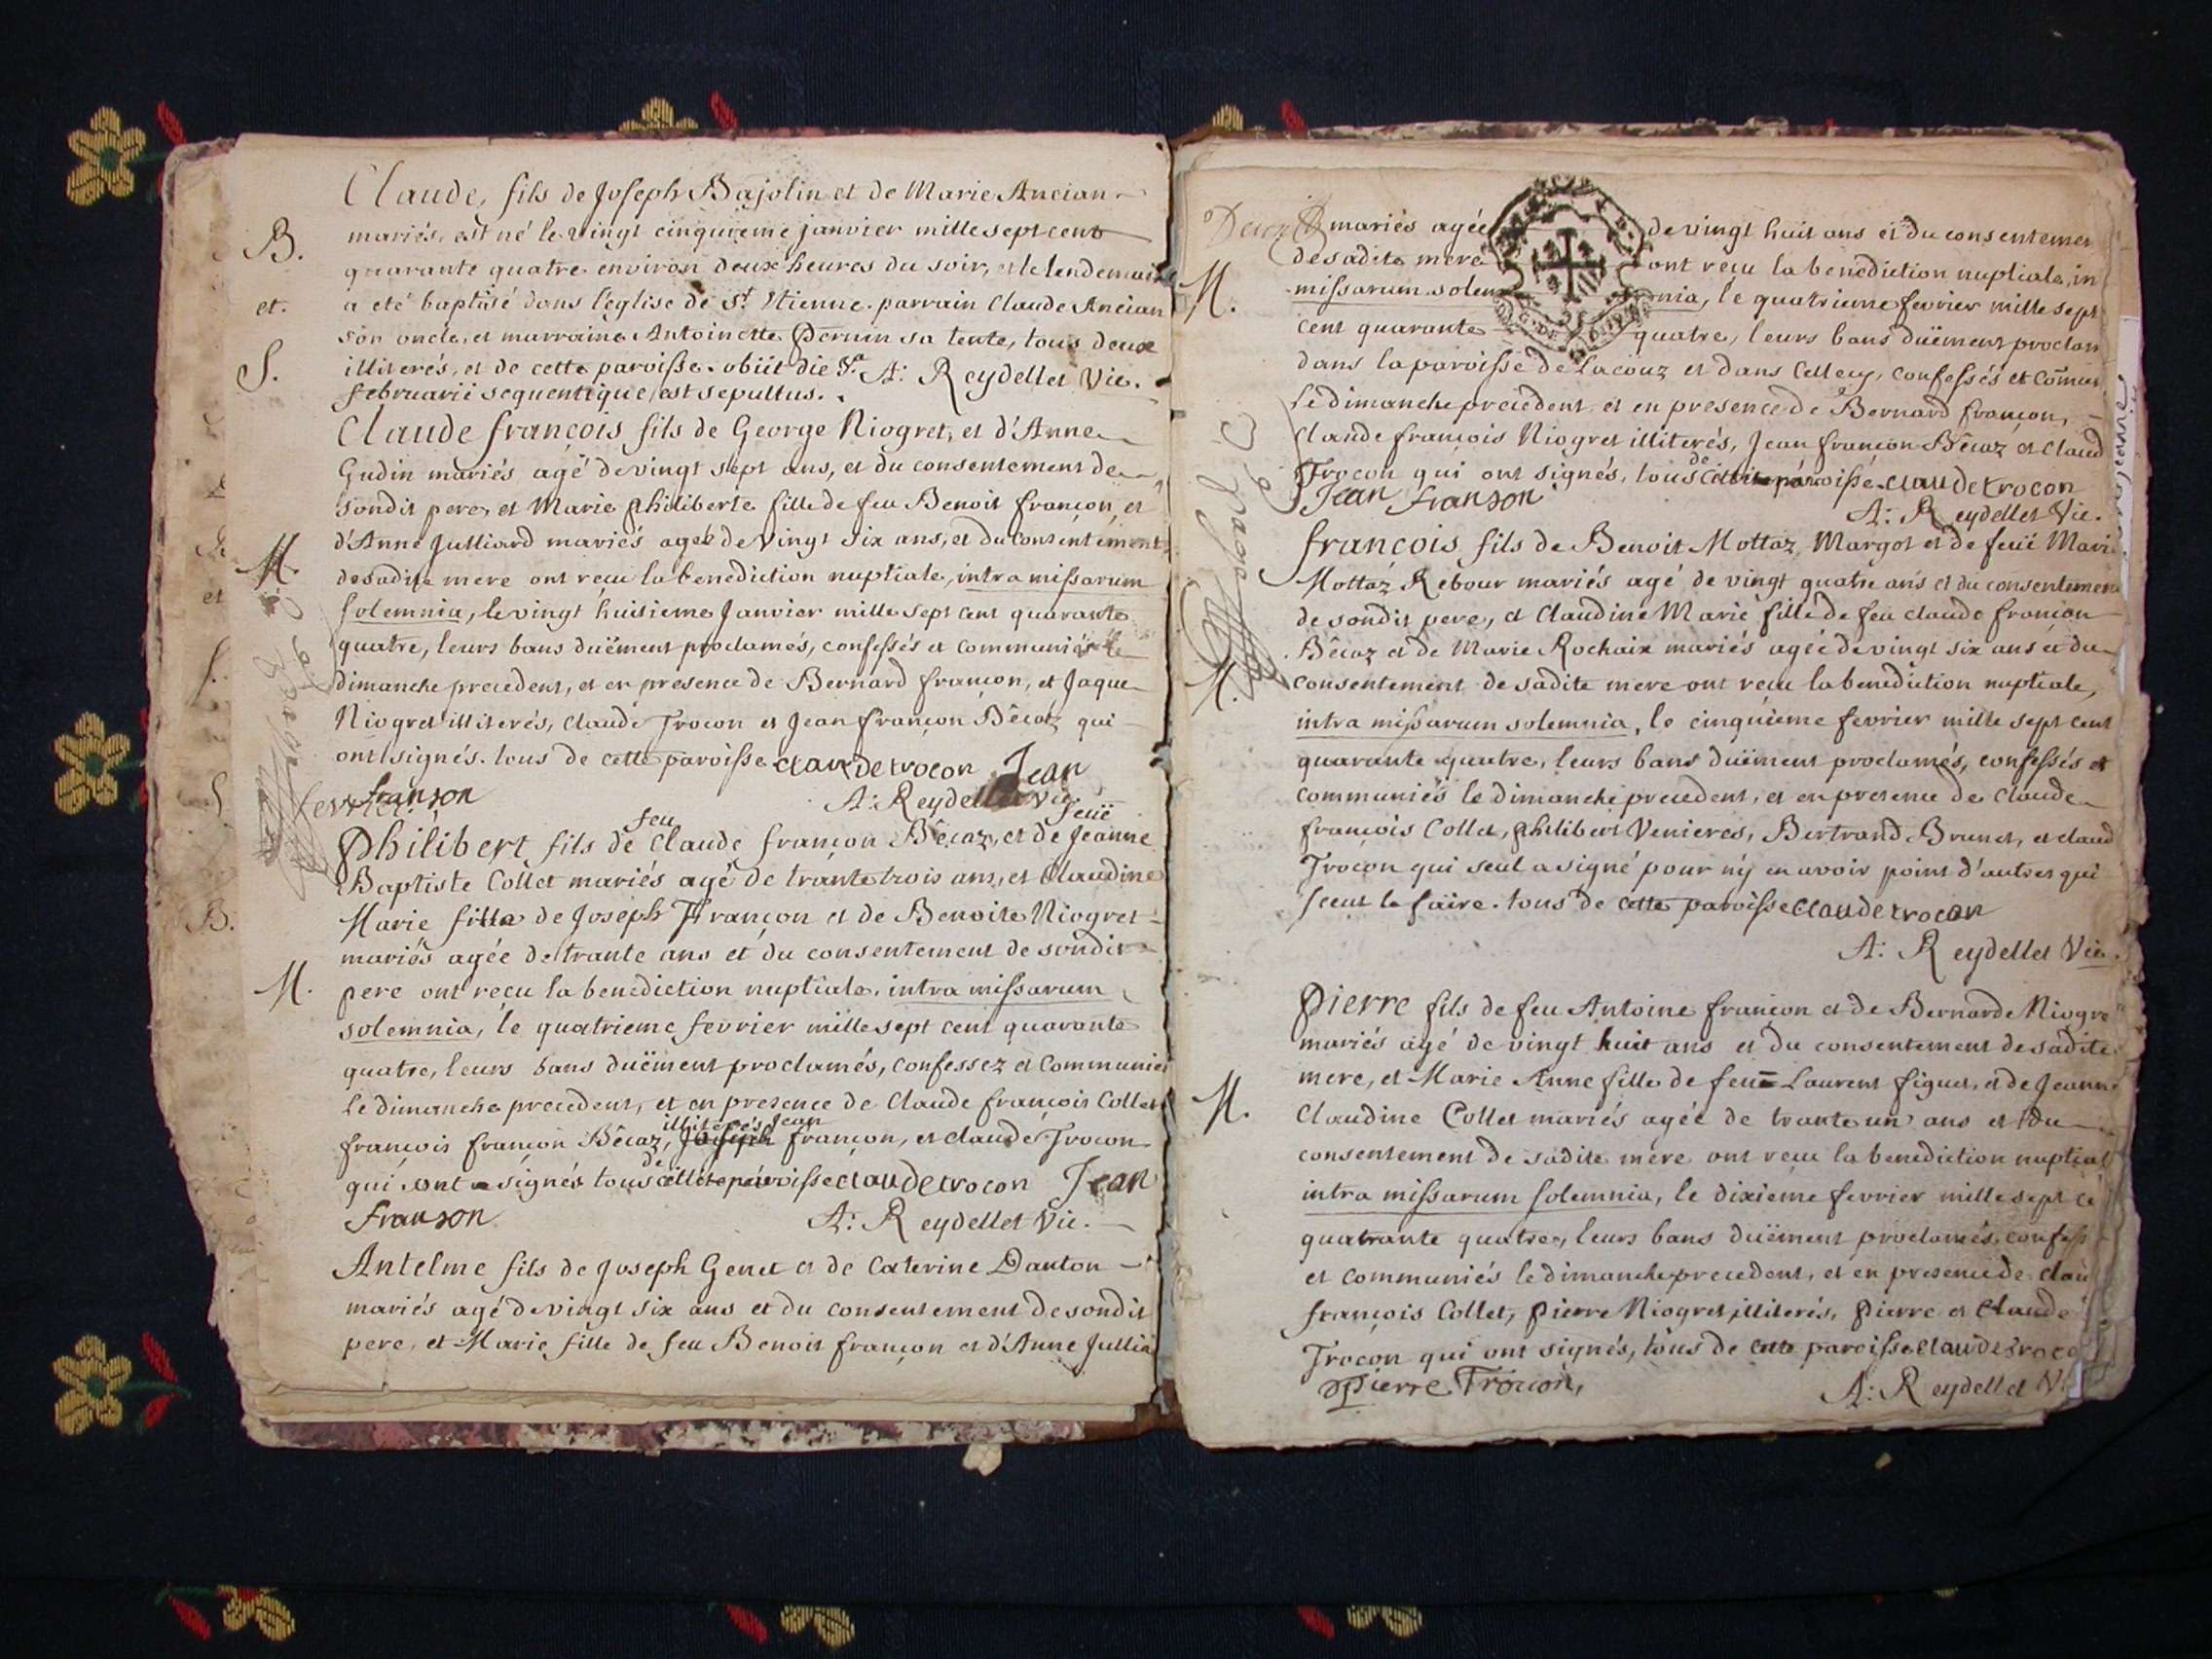 Claude, fils de Joseph Bajolin et de Marie Ancian
B. mariés, est né le vingt cinquieme janvier mille sept cent
quarante quatre environ deux heures du soir, et le lendemain
et. a eté baptisé dans l'église de St. Etienne. parrain Claude Ancian
son oncle, et marraine Antoinette Pernin sa tente, tous deux
S. illiterés, et de cette paroisse. obiit die 8a A: Reydellet Vic.
februarii sequentique est sepultus.
Claude françois fils de George Niogret, et d'Anne
Gudin mariés agé de vingt sept ans, et du consentement de
sondit pere, et Marie philiberte fille de feu Benoit françon, et
d'Anne Julliard mariés agée de vingt six ans, et du consentement
M. de sadite mere ont reçu la benediction nuptiale, intra missarum
solemnia, le vingt huitieme Janvier mille sept cent quarante
quatre, leurs bans duëment proclamés, confessés et communiés le
dimanche precedent, et en presence de Bernard françon, et Jaque
Niogret illiterés, claude Trocon et Jean françon Bêcaz qui
ont signés. tous de cette paroisse claudetrocon Jean
franson A: Reydellet Vic.
fevrier
feu feuë
Philibert fils de Claude françon Bêcaz, et de Jeanne
Baptiste Collet mariés agé de trante trois ans, et Claudine
Marie fille de Joseph Françon et de Benoite Niogret
mariés agée de trante ans et du consentement de sondit
M. pere ont reçu la benediction nuptiale, intra missarum
solemnia, le quatrieme fevrier mille sept cent quarante
quatre, leurs bans duëment proclamés, confessez et communiés
le dimanche precedent, et en presence de Claude françois Collet
illiterés Jean
françois françon Bêcaz, Joseph françon, et claude Trocon
de
qui ont signés tous cette paroisse claudetrocon Jean
franson A: Reydellet Vic.
Antelme fils de Joseph Genet et de Caterine Danton
mariés agé de vingt six ans et du consentement de sondit
pere, et Marie fille de feu Benoit françon et d'Anne Jullia
mariés agée de vingt huit ans et du consentemen
de sadite mere ont reçu la benediction nuptiale, in
M. missarum solemnia, le quatrieme fevrier mille sept
cent quarante quatre, leurs bans duëment proclam
dans la paroisse de Lacouz et dans celle cy, confessés et com̃un
le dimanche precedent et en presence de Bernard françon,
claude françois Niogret illiterés, Jean françon Bêcaz et claud
de
Trocon qui ont signés, tous cette paroisse. claudetrocon
Jean franson
A: Reydellet Vic.
françois fils de Benoit Mottaz Margot et de feuë Mari
Mottaz Rebour mariés agé de vingt quatre ans et du consentemen
de sondit pere, et Claudine Marie fille de feu claude françon
Bêcaz et de Marie Rochaix mariés agée de vingt six ans et du
M. consentement de sadite mere ont reçu la benediction nuptiale,
intra missarum solemnia, le cinquieme fevrier mille sept cent
quarante quatre, leurs bans duëment proclamés, confessés et
communiés le dimanche precedent, et en presence de Claude
françois Collet, philibert Venieres, Bertrand Brunet, et claud
Trocon qui seul a signé pour n'y en avoir point d'autres qui
sceut le faire. tous de cette paroisse claudetrocon
A: Reydellet Vic.
Pierre fils de feu Antoine françon et de Bernarde Niogre
mariés agé de vingt huit ans et du consentement de sadite
mere, et Marie Anne fille de feu Laurent figuet, et de Jeanne
M. Claudine Collet mariés agée de trante un ans et du
consentement de sadite mere ont reçu la benediction nuptial
intra missarum solemnia, le dixieme fevrier mille sept ce
quatrante quatre, leurs bans duëment proclamés, confess
et communiés le dimanche precedent, et en presence de clau
françois Collet, pierre Niogret illiterés, pierre et Claude
Trocon qui ont signés, tous de cette paroisse claudetroco
Pierre Trocon, A: Reydellet Vi